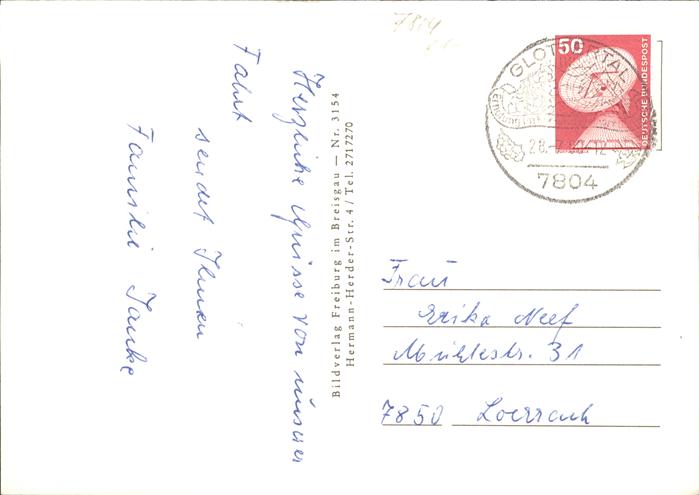 Herzliche Grüsse von unserer
Fahrt
sendet Ihnen
Familie Janke
Bildverlag Freiburg im Breisgau — Nr. 3154
Hermann-Herder-Str. 4 / Tel. 2717270
7804
50
DEUTSCHE BUNDESPOST
GLOTTERTAL
7804
Frau
Erika Neef
Mühlestr. 31
7850 Loerrach